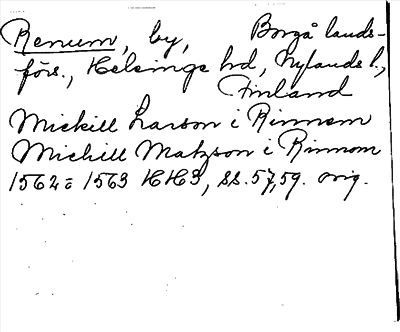 Renum, by, Borgå lands-
förs., Helsinge hd, Nylands l.,
Finland
Mickill Larson i Rinnom
Michill Matzson i Rinnom
1562 o 1563 HH3, ss. 57, 59. orig.